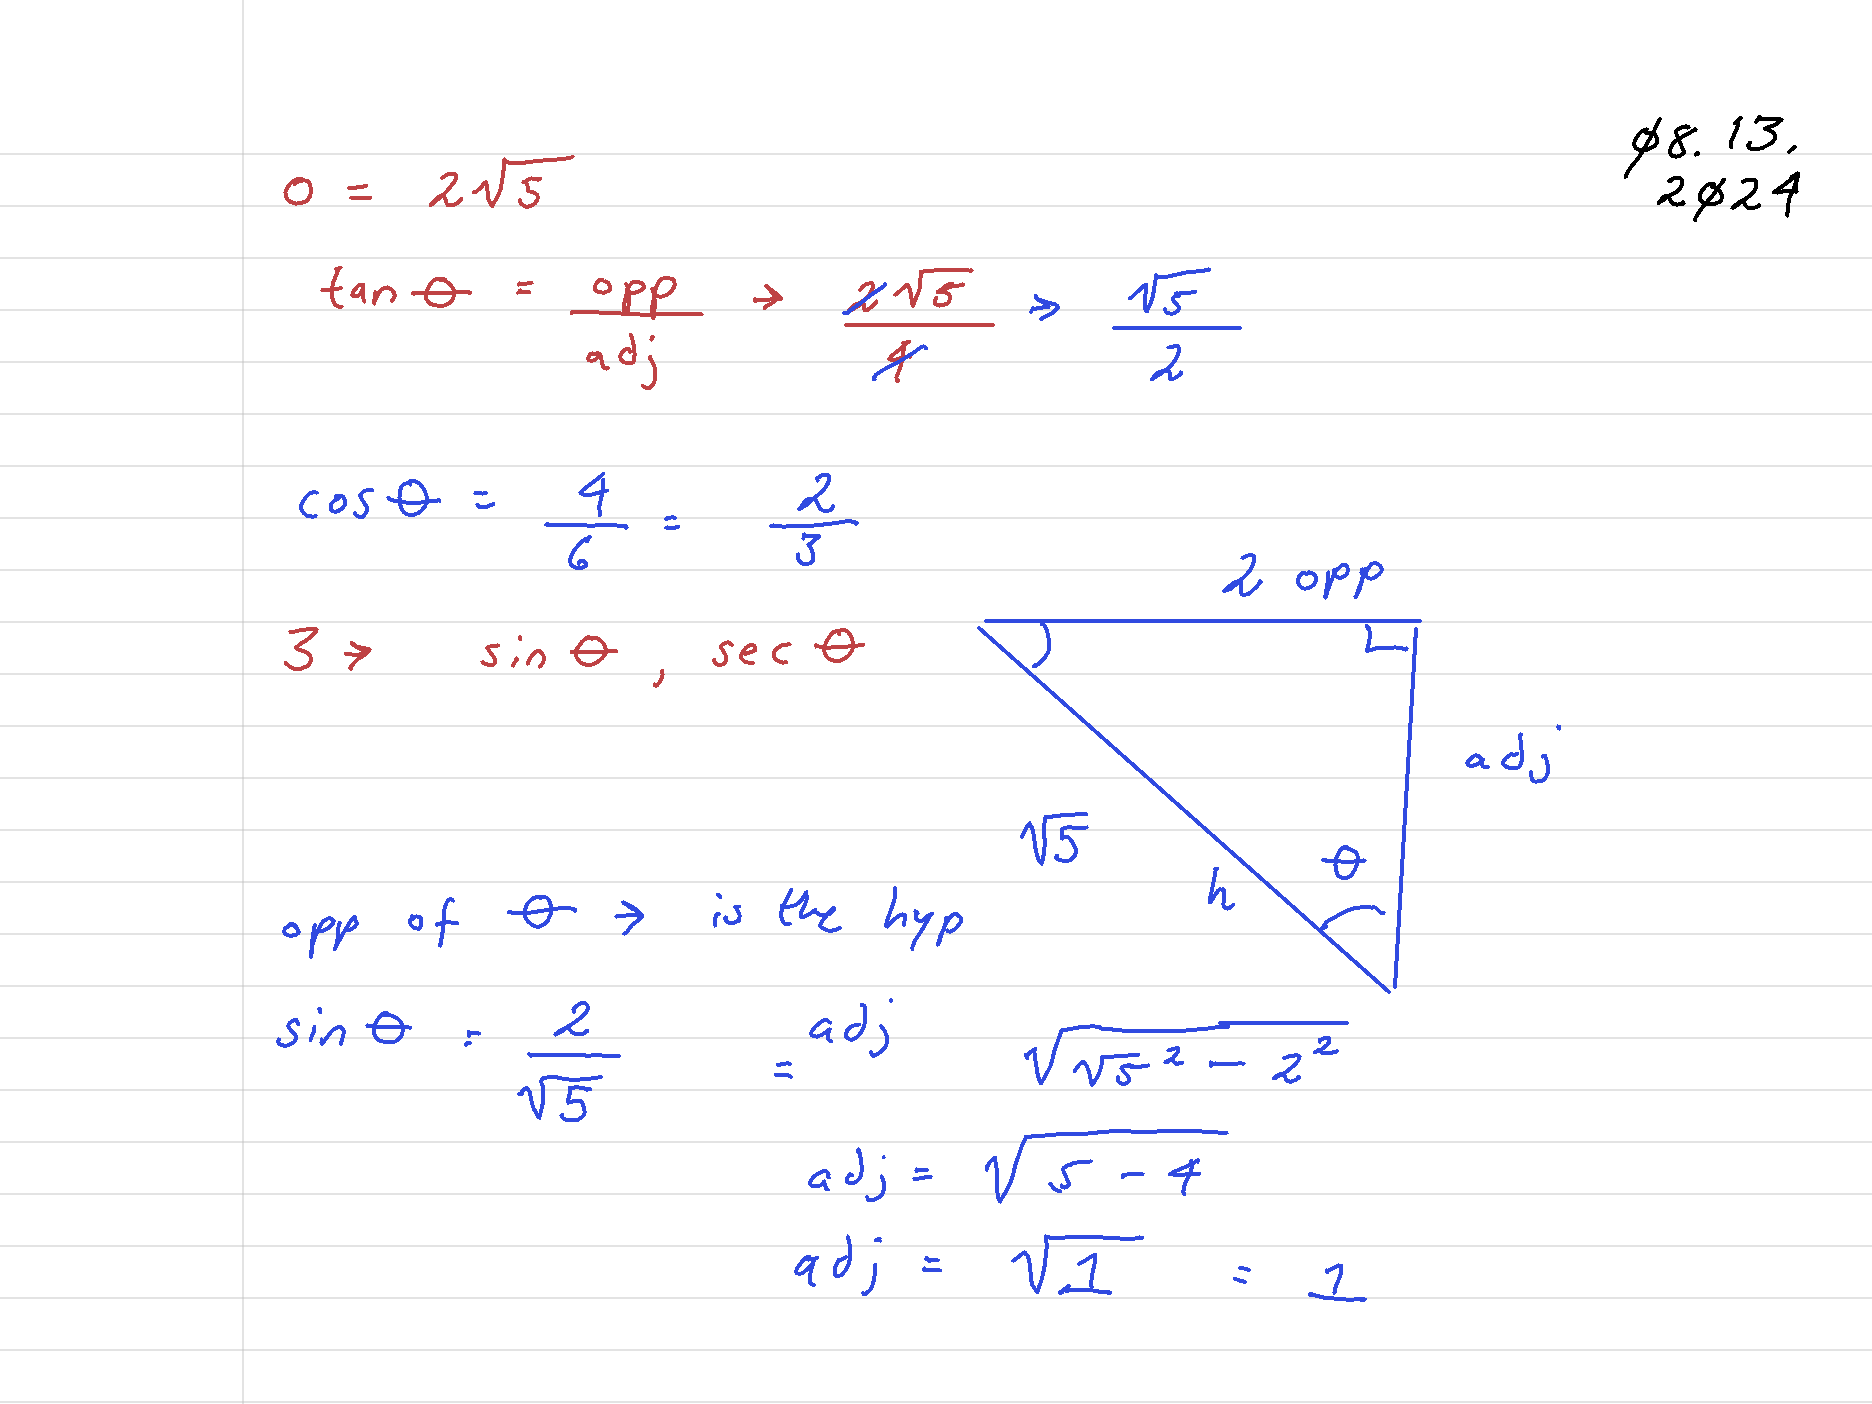 ø8.13.
2ø24
o = 2√5
tan θ = opp/adj → 2√5/4 → √5/2
cos θ = 4/6 = 2/3
2 opp
3 → sin θ, sec θ
adj
√5
θ
h
opp of θ → is the hyp
sin θ = 2/√5 = adj √(√5² - 2²)
adj = √(5 - 4)
adj = √1 = 1